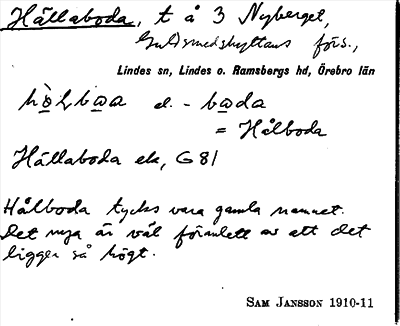 Hällaboda, t å 3 Nyberget,
Guldsmedshyttans förs.,
Lindes sn, Lindes o. Ramsbergs hd, Örebro län
el. - boda
= Hålboda
Hällaboda ek, G 81
Hålboda tycks vara gamla namnet.
Det nya är väl föranlett av att det
ligger så högt.
SAM JANSSON 1910-11